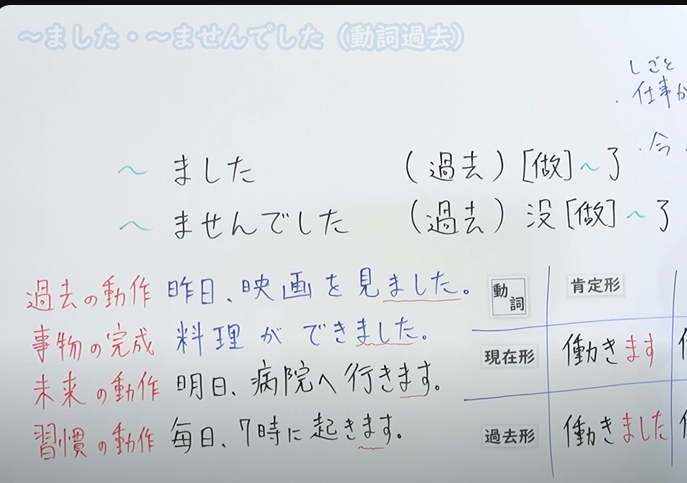 ～ました・～ませんでした（動詞過去）
しごと
・仕事か
・今
～ました （過去）[做]～了
～ませんでした （過去）没[做]～了
過去の動作 昨日、映画を見ました。
事物の完成 料理ができました。
未来の動作 明日、病院へ行きます。
習慣の動作 毎日、7時に起きます。
動詞 肯定形
現在形 働きます
過去形 働きました